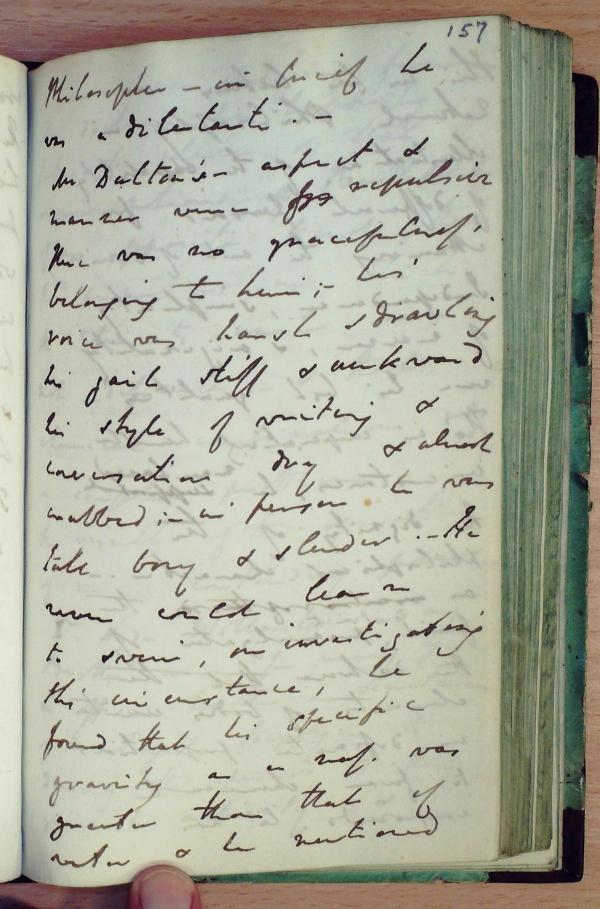 157
Philosopher – in brief he
was a diletanti. –
Mr Dalton's aspect &
manner were repulsive
There was no gracefulness
belonging to him; – his
voice was harsh & drawling
his gait stiff & awkward
his style of writing &
conversation dry & almost
crabbed; – in person he was
tall bony & slender. – He
never could learn
to swim, on investigating
this circumstance, he
found that his specific
gravity as a mass was
greater than that of
water & he mentioned